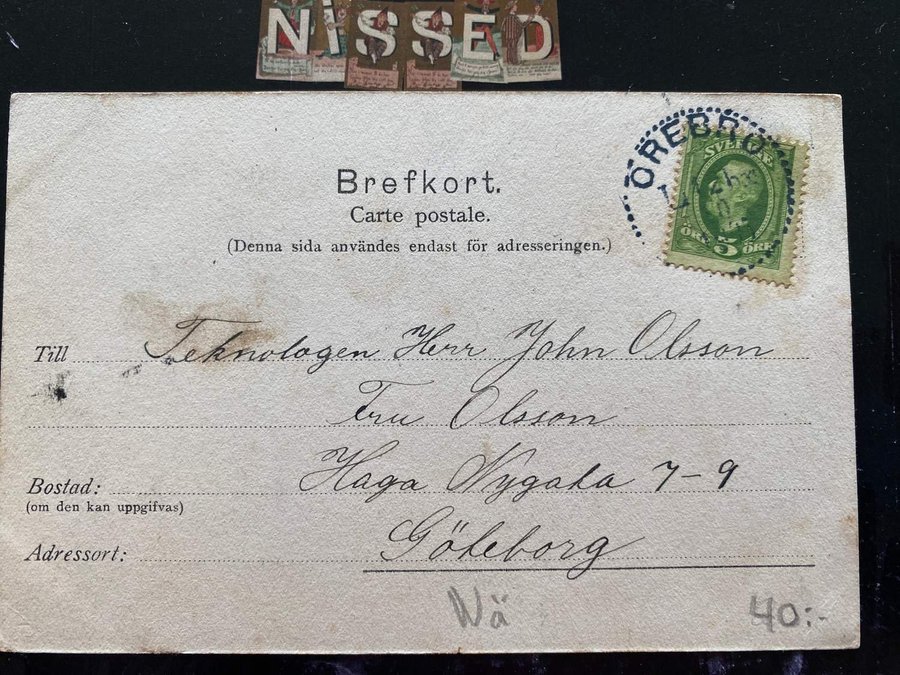 NISSED
Brefkort.
Carte postale.
(Denna sida användes endast för adresseringen.)
ÖREBRO
SVERIGE
ÖRE 5 ÖRE
Till Teknologen Herr John Olsson
Fru Olsson
Bostad: Haga Nygata 7-9
(om den kan uppgifvas)
Adressort: Göteborg
Nä 40:-